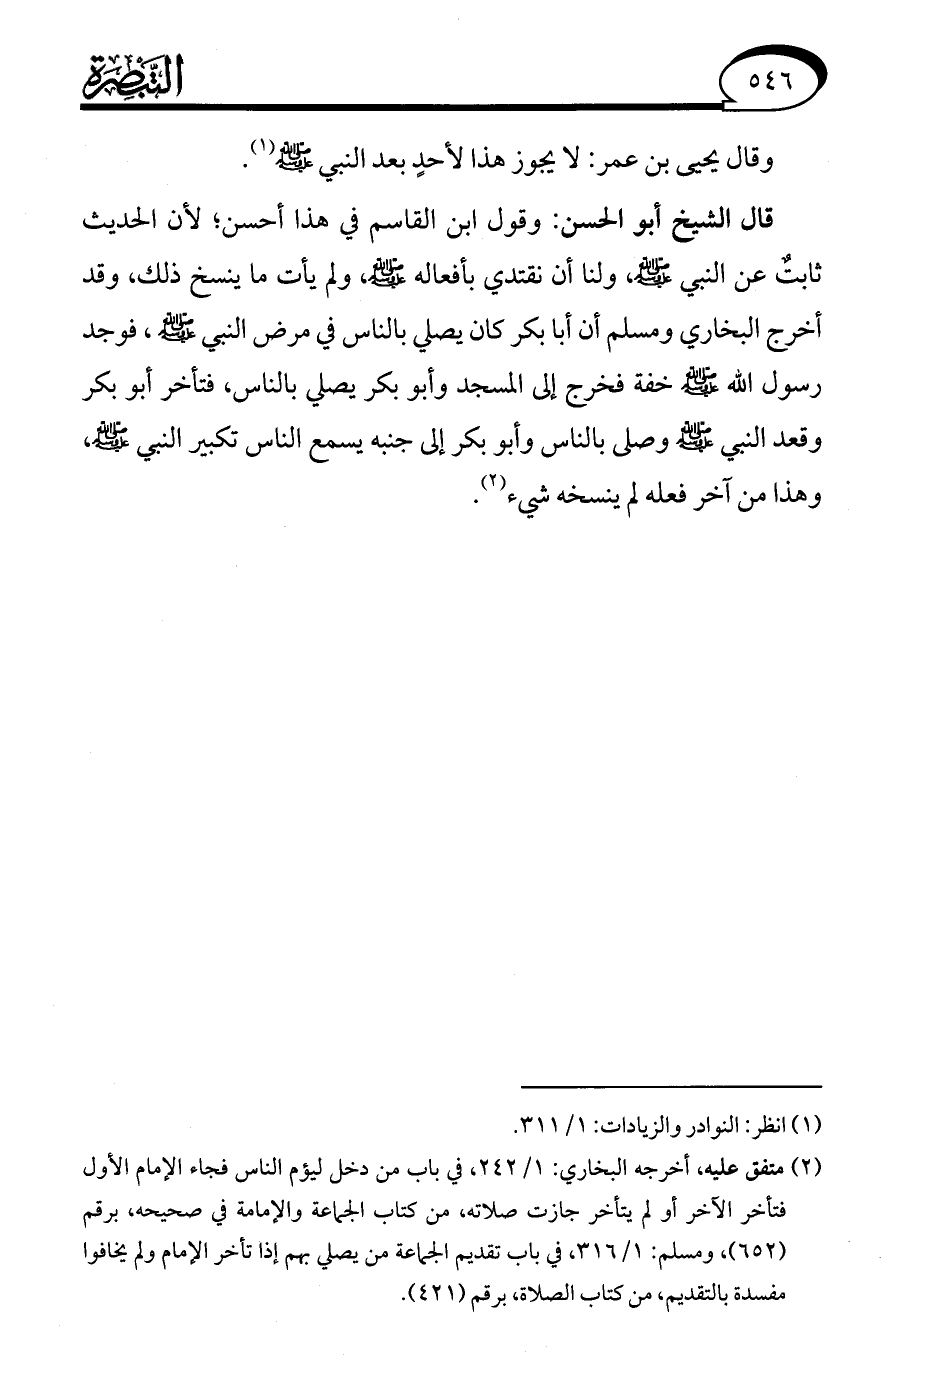 ٥٤٦
التبصرة
وقال يحيى بن عمر: لا يجوز هذا لأحدٍ بعد النبي ﷺ(١).
قال الشيخ أبو الحسن: وقول ابن القاسم في هذا أحسن؛ لأن الحديث
ثابتٌ عن النبي ﷺ، ولنا أن نقتدي بأفعاله ﷺ، ولم يأت ما ينسخ ذلك، وقد
أخرج البخاري ومسلم أن أبا بكر كان يصلي بالناس في مرض النبي ﷺ، فوجد
رسول الله ﷺ خفة فخرج إلى المسجد وأبو بكر يصلي بالناس، فتأخر أبو بكر
وقعد النبي ﷺ وصلى بالناس وأبو بكر إلى جنبه يسمع الناس تكبير النبي ﷺ،
وهذا من آخر فعله لم ينسخه شيء(٢).
(١) انظر: النوادر والزيادات: ١/ ٣١١.
(٢) متفق عليه، أخرجه البخاري: ١/ ٢٤٢، في باب من دخل ليؤم الناس فجاء الإمام الأول
فتأخر الآخر أو لم يتأخر جازت صلاته، من كتاب الجماعة والإمامة في صحيحه، برقم
(٦٥٢)، ومسلم: ١/ ٣١٦، في باب تقديم الجماعة من يصلي بهم إذا تأخر الإمام ولم يخافوا
مفسدة بالتقديم، من كتاب الصلاة، برقم (٤٢١).